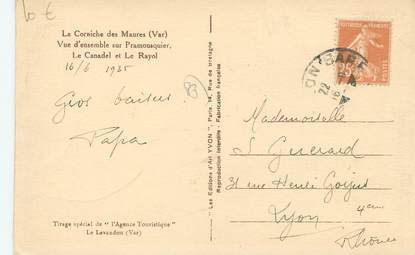 10 €
La Corniche des Maures (Var)
Vue d'ensemble sur Pramousquier,
Le Canadel et Le Rayol
16/6 1935
83
Gros baisers
Papa
Tirage spécial de "l'Agence Touristique"
Le Lavandou (Var)
"Les Editions d'Art YVON", Paris, 14, Rue de Bretagne
Reproduction interdite - Fabrication française
Mademoiselle
S Guerard
31 rue Henri
Lyon
4eme
Rhone
POSTES